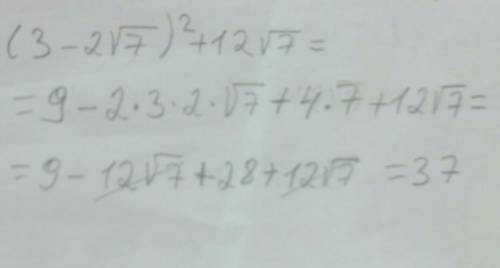 (3 - 2√7)² + 12√7 =
= 9 - 2·3·2·√7 + 4·7 + 12√7 =
= 9 - 12√7 + 28 + 12√7 = 37